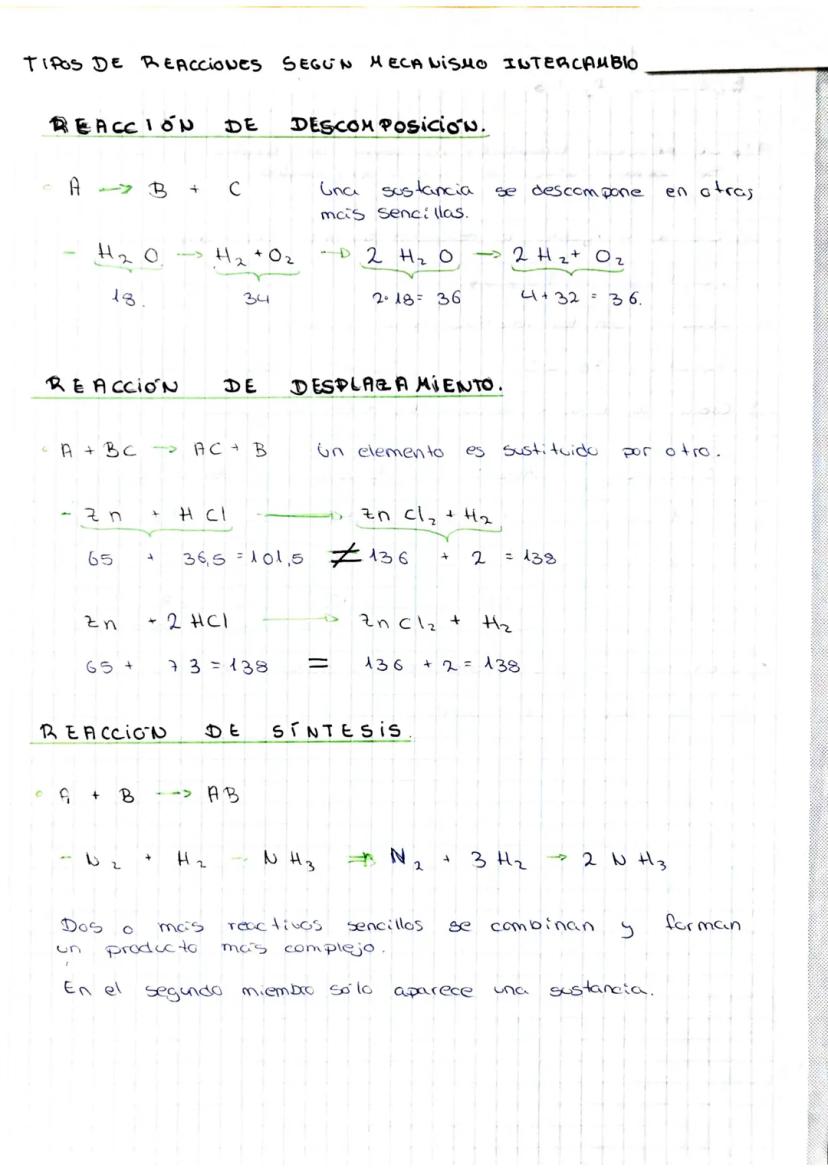 TIPOS DE REACCIONES SEGÚN MECANISMO INTERCAMBIO
REACCIÓN DE DESCOMPOSICIÓN.
A → B + C Una sustancia se descompone en otras
más sencillas.
- H₂O → H₂ + O₂ → 2 H₂O → 2 H₂ + O₂
18. 34 2·18 = 36 4 + 32 = 36.
REACCIÓN DE DESPLAZAMIENTO.
A + BC → AC + B Un elemento es sustituido por otro.
- Zn + HCl → ZnCl₂ + H₂
65 + 36,5 = 101,5 ≠ 136 + 2 = 138
Zn + 2 HCl → ZnCl₂ + H₂
65 + 73 = 138 = 136 + 2 = 138
REACCIÓN DE SÍNTESIS.
A + B → AB
- N₂ + H₂ → NH₃ ⇒ N₂ + 3 H₂ → 2 NH₃
Dos o más reactivos sencillos se combinan y forman
un producto más complejo.
En el segundo miembro sólo aparece una sustancia.